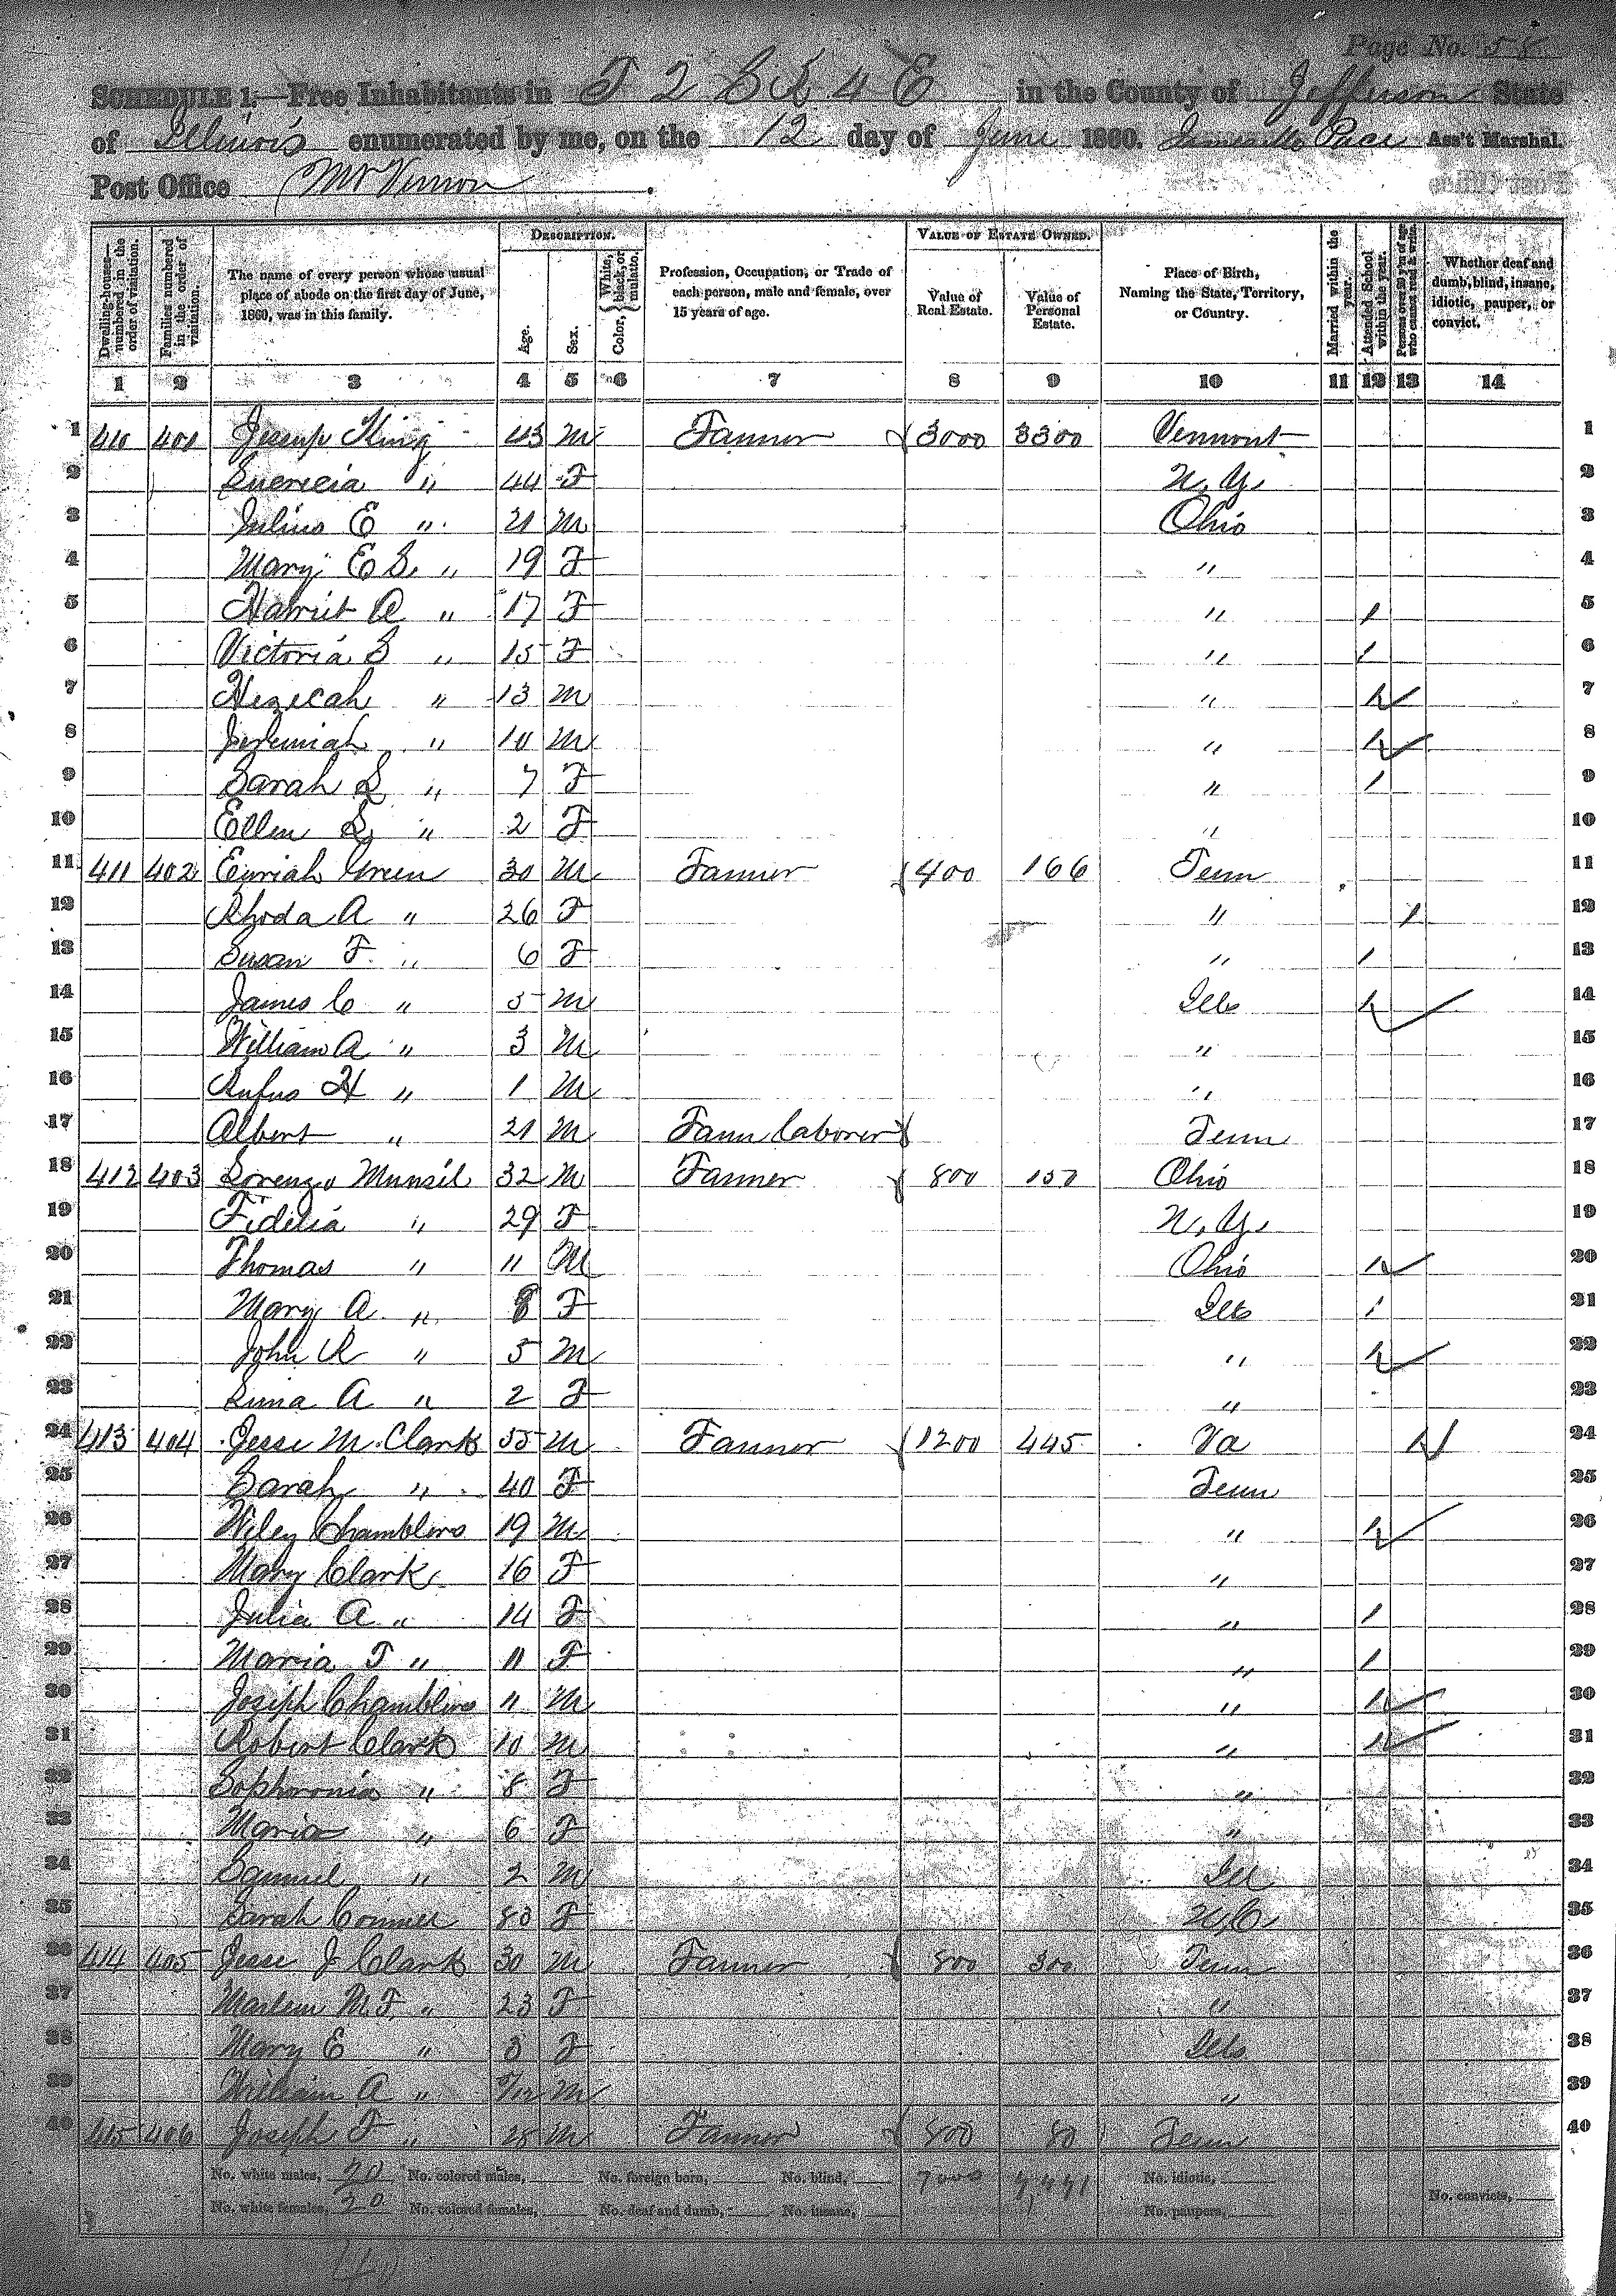 Page No. 58
SCHEDULE 1.—Free Inhabitants in T 2 S R 4 E in the County of Jefferson State
of Illinois enumerated by me, on the 12 day of June 1860. Pace Ass't Marshal.
Post Office Mt Vernon.
DESCRIPTION. VALUE OF ESTATE OWNED.
Dwelling-houses—numbered in the order of visitation. Families numbered in the order of visitation. The name of every person whose usual place of abode on the first day of June, 1860, was in this family. Age. Sex. Color, {White, black, or mulatto. Profession, Occupation, or Trade of each person, male and female, over 15 years of age. Value of Real Estate. Value of Personal Estate. Place of Birth, Naming the State, Territory, or Country. Married within the year. Attended School within the year. Persons over 20 y'rs of age who cannot read & write. Whether deaf and dumb, blind, insane, idiotic, pauper, or convict.
1 2 3 4 5 6 7 8 9 10 11 12 13 14
1 410 401 Jesup King 43 M Farmer 3000 3300 Vermont 1
2 " 44 F N. Y. 2
3 Julius E " 21 M Ohio 3
4 Mary E S. " 19 F " 4
5 Harriet A " 17 F " 1 5
6 Victoria S " 15 F " 1 6
7 Hezecah " 13 M " 1 7
8 Jeremiah " 10 M " 1 8
9 Sarah L " 7 F " 1 9
10 Ellen L " 2 F " 10
11 411 402 Euriah Green 30 M Farmer 400 166 Tenn 11
12 Rhoda A " 26 F " 1 12
13 Susan F. " 6 F " 1 13
14 James C " 5 M Ills 1 14
15 William A " 3 M " 15
16 Rufus H " 1 M " 16
17 Albert " 21 M Farm laborer Tenn 17
18 412 403 Lorenzo Munsil 32 M Farmer 800 150 Ohio 18
19 Fidelia " 29 F N. Y. 19
20 Thomas " 11 M Ohio 1 20
21 Mary A " 8 F Ills 1 21
22 John R " 5 M " 1 22
23 A " 2 F " 23
24 413 404 Jesse M. Clark 55 M Farmer 1200 445 Va 1 24
25 Sarah " 40 F Tenn 25
26 Wiley Chamblers 19 M " 1 26
27 Mary Clark 16 F " 27
28 Julia A " 14 F " 1 28
29 Maria T " 11 F " 1 29
30 Joseph Chamblers 11 M " 1 30
31 Robert Clark 10 M " 1 31
32 Sophronia " 8 F " 32
33 Maria " 6 F " 33
34 Samuel " 2 M Ill 34
35 Sarah 80 F N. C. 35
36 414 405 Jesse J Clark 30 M Farmer 800 300 Tenn 36
37 M. F. " 23 F " 37
38 Mary E " 3 F Ills 38
39 William A " M " 39
40 415 406 Joseph F " 28 M Farmer 800 80 Tenn 40
No. white males, 20 No. colored males, No. foreign born, No. blind, 7000 No. idiotic,
No. white females, 20 No. colored females, No. deaf and dumb, No. insane, No. paupers, No. convicts,